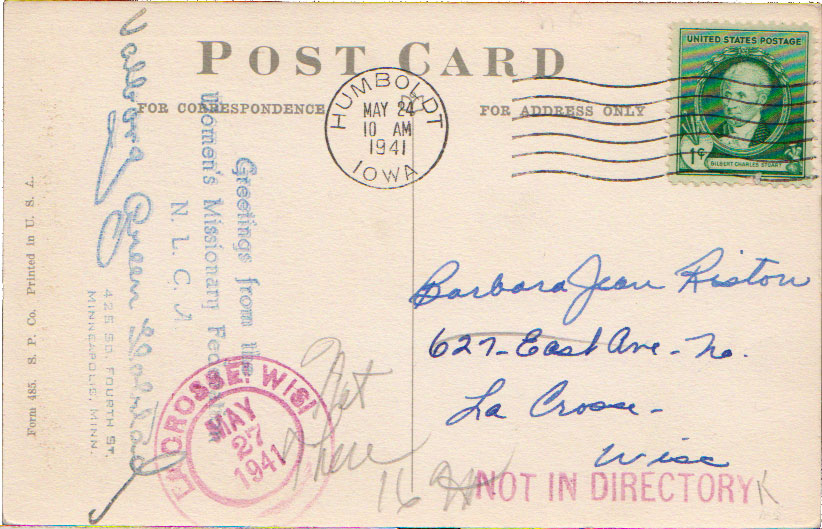 POST CARD
FOR CORRESPONDENCE
FOR ADDRESS ONLY
HUMBOLDT
MAY 24
10 AM
1941
IOWA
UNITED STATES POSTAGE
1¢
GILBERT CHARLES STUART
Greetings from the
Women's Missionary
N. L. C. A.
Valborg
Green
425 SO. FOURTH ST.
MINNEAPOLIS, MINN.
Form 485. S. P. Co. Printed in U. S. A.
Barbara Jean Riston
627-East Ave-No.
La Crosse-
Wisc
LA CROSSE, WIS
MAY
27
1941
Not
There
16
NOT IN DIRECTORY
K